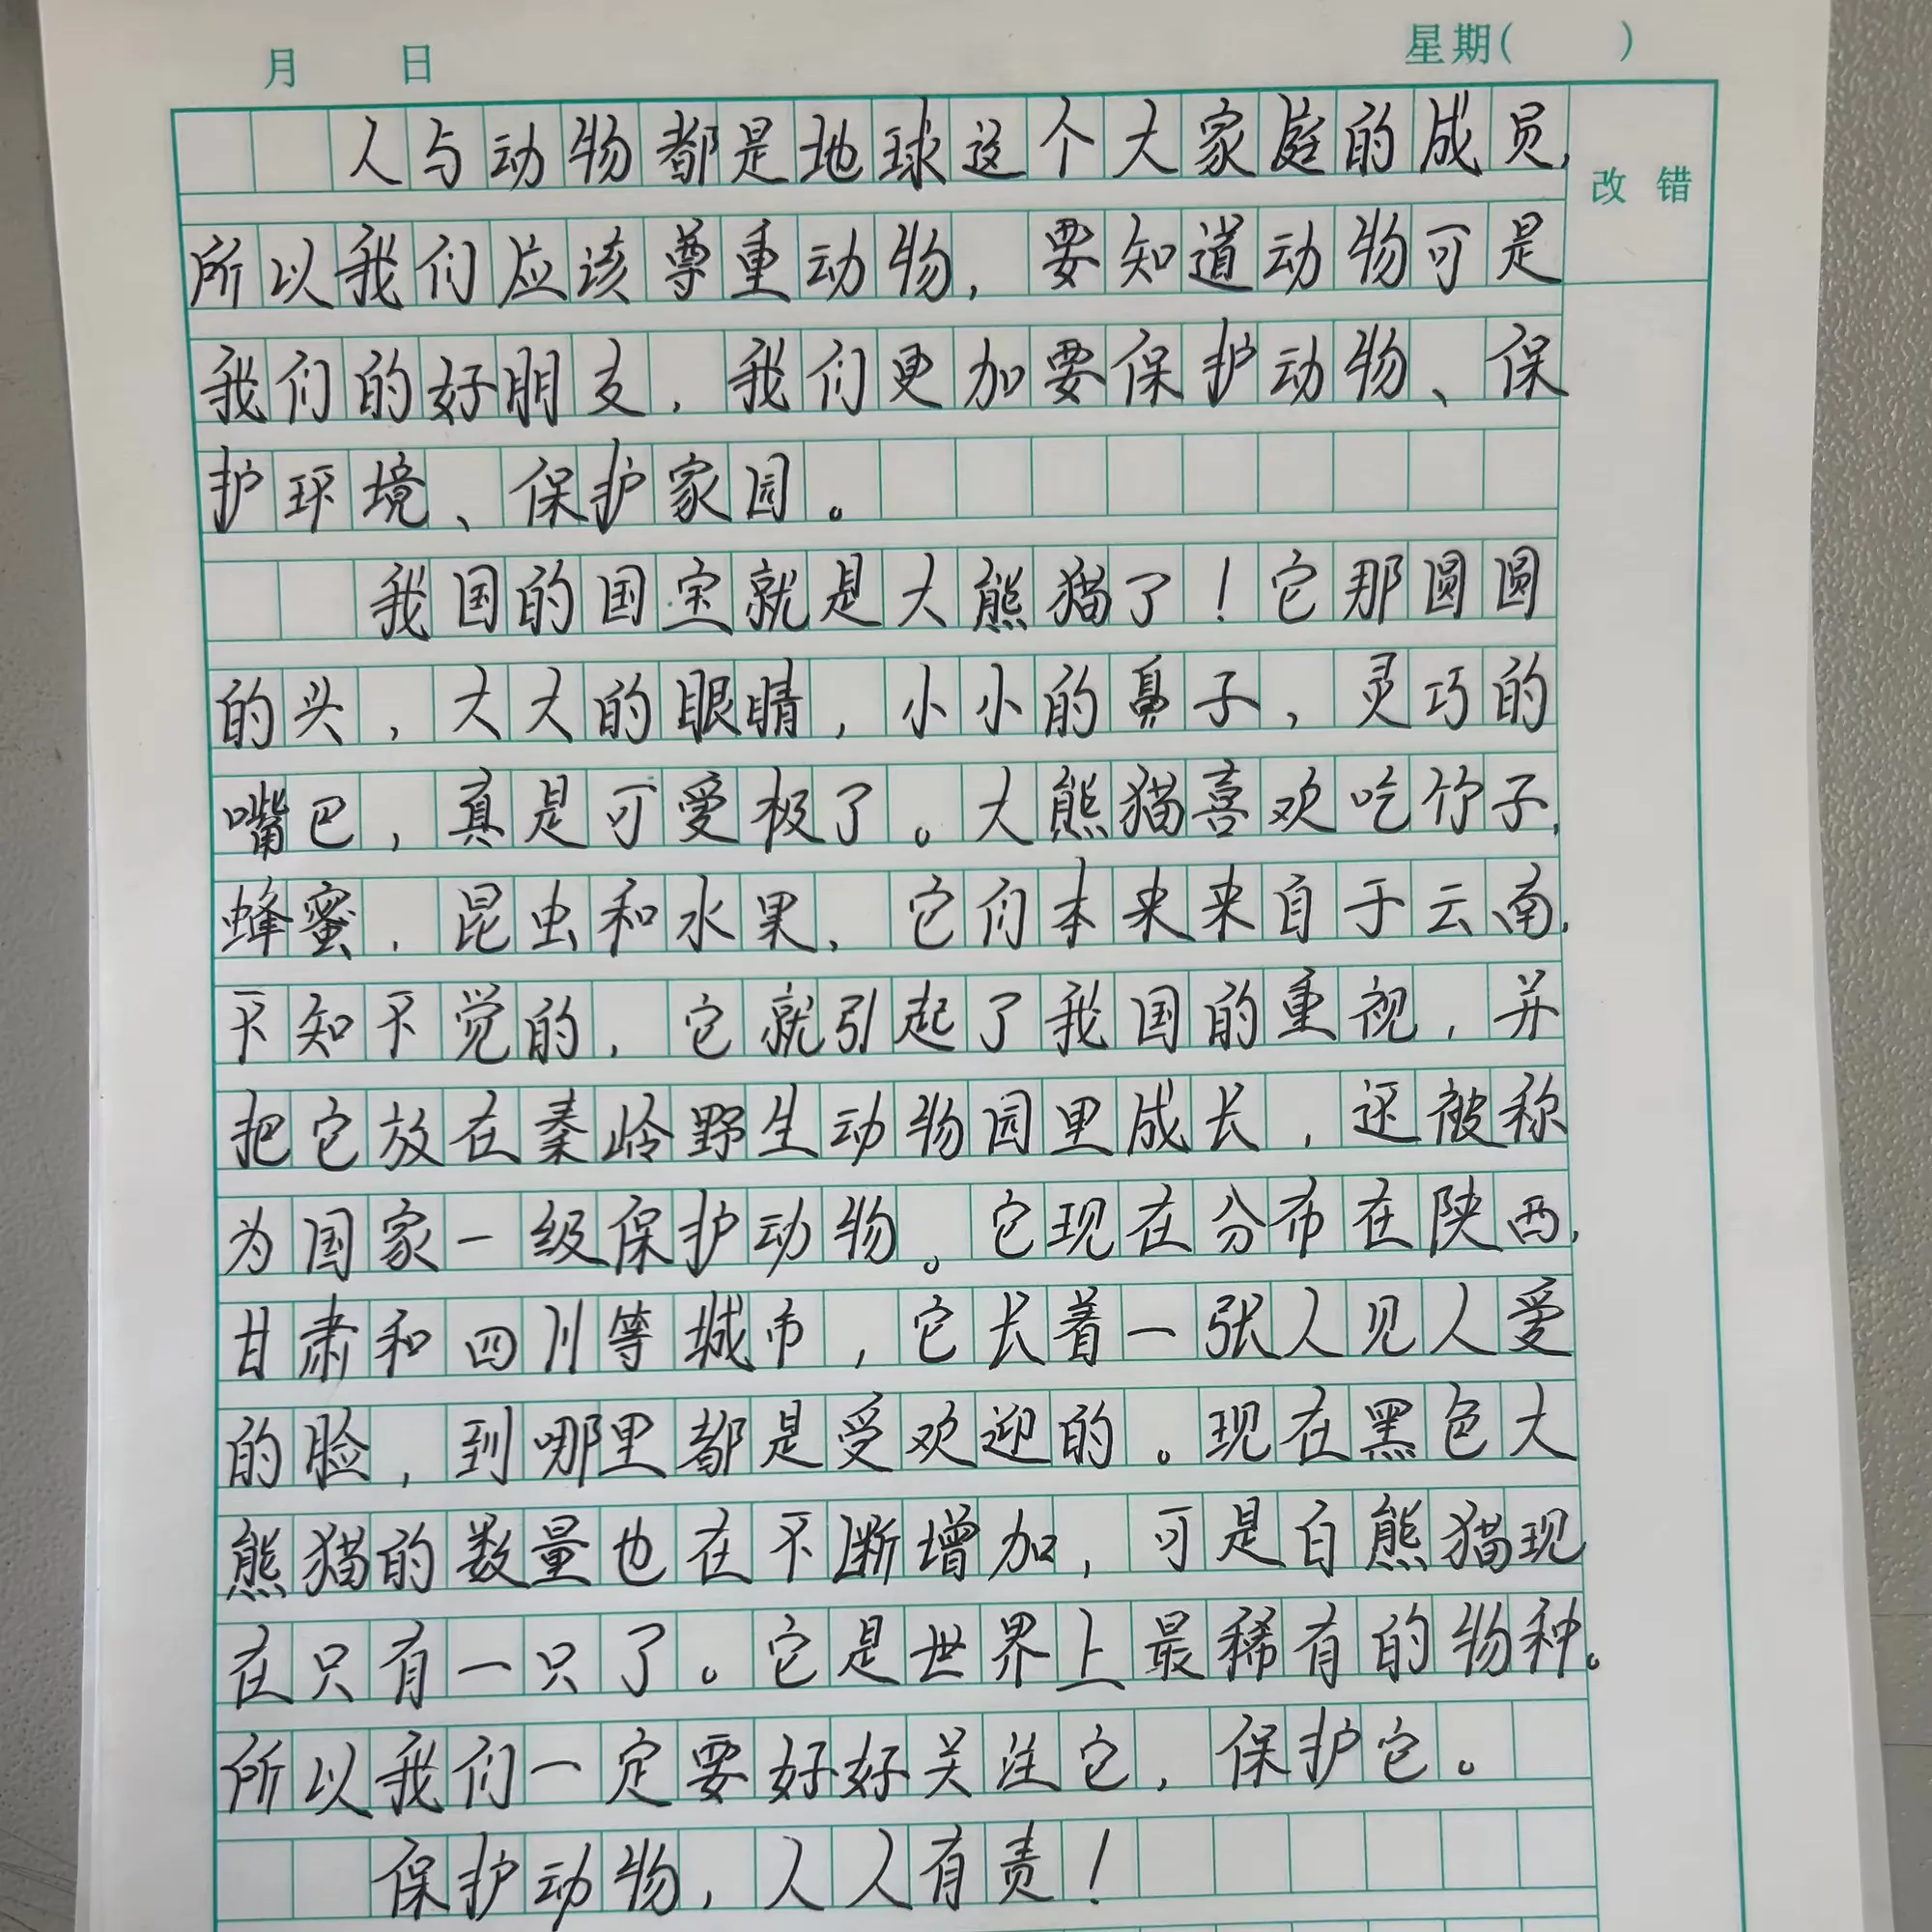 月 日 星期( )
人与动物都是地球这个大家庭的成员,
改 错
所以我们应该尊重动物，要知道动物可是
我们的好朋友，我们更加要保护动物、保
护环境、保护家园。
我国的国宝就是大熊猫了！它那圆圆
的头，大大的眼睛，小小的鼻子，灵巧的
嘴巴，真是可爱极了。大熊猫喜欢吃竹子,
蜂蜜，昆虫和水果，它们本来来自于云南,
不知不觉的，它就引起了我国的重视，并
把它放在秦岭野生动物园里成长，还被称
为国家一级保护动物。它现在分布在陕西,
甘肃和四川等城市，它长着一张人见人爱
的脸，到哪里都是受欢迎的。现在黑色大
熊猫的数量也在不断增加，可是白熊猫现
在只有一只了。它是世界上最稀有的物种。
所以我们一定要好好关注它，保护它。
保护动物，人人有责！